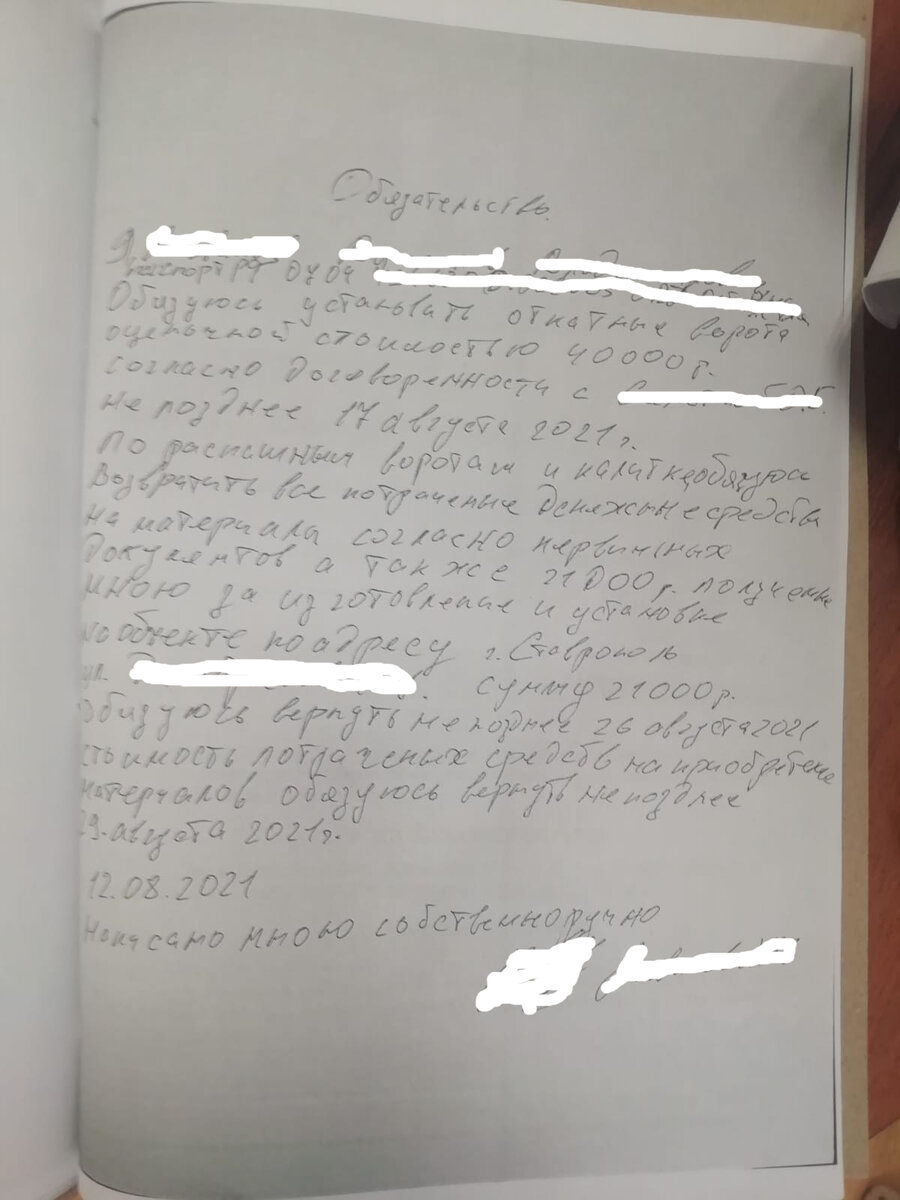 Обязательство.
Я
паспорт РФ 07 04
Обизуюсь установать откатные ворота
оценочной стоимостью 40000 г.
согласно договоренности с
не позднее 17 августа 2021 г.
По распашным воротам и калитке обязуюсь
Возвратить все потраченые денежные средства
на материалы согласно первичных
документов а так же 21000 г. полученые
мною за изготовление и установке
на объекте по адресу г. Ставрополь
ул. сумму 21000 р.
Обизуюсь вернуть не позднее 26 августа 2021
стоимость потраченых средств на приобретение
материалов обязуюсь вернуть не позднее
29 августа 2021 г.
12.08.2021
Написано мною собственноручно